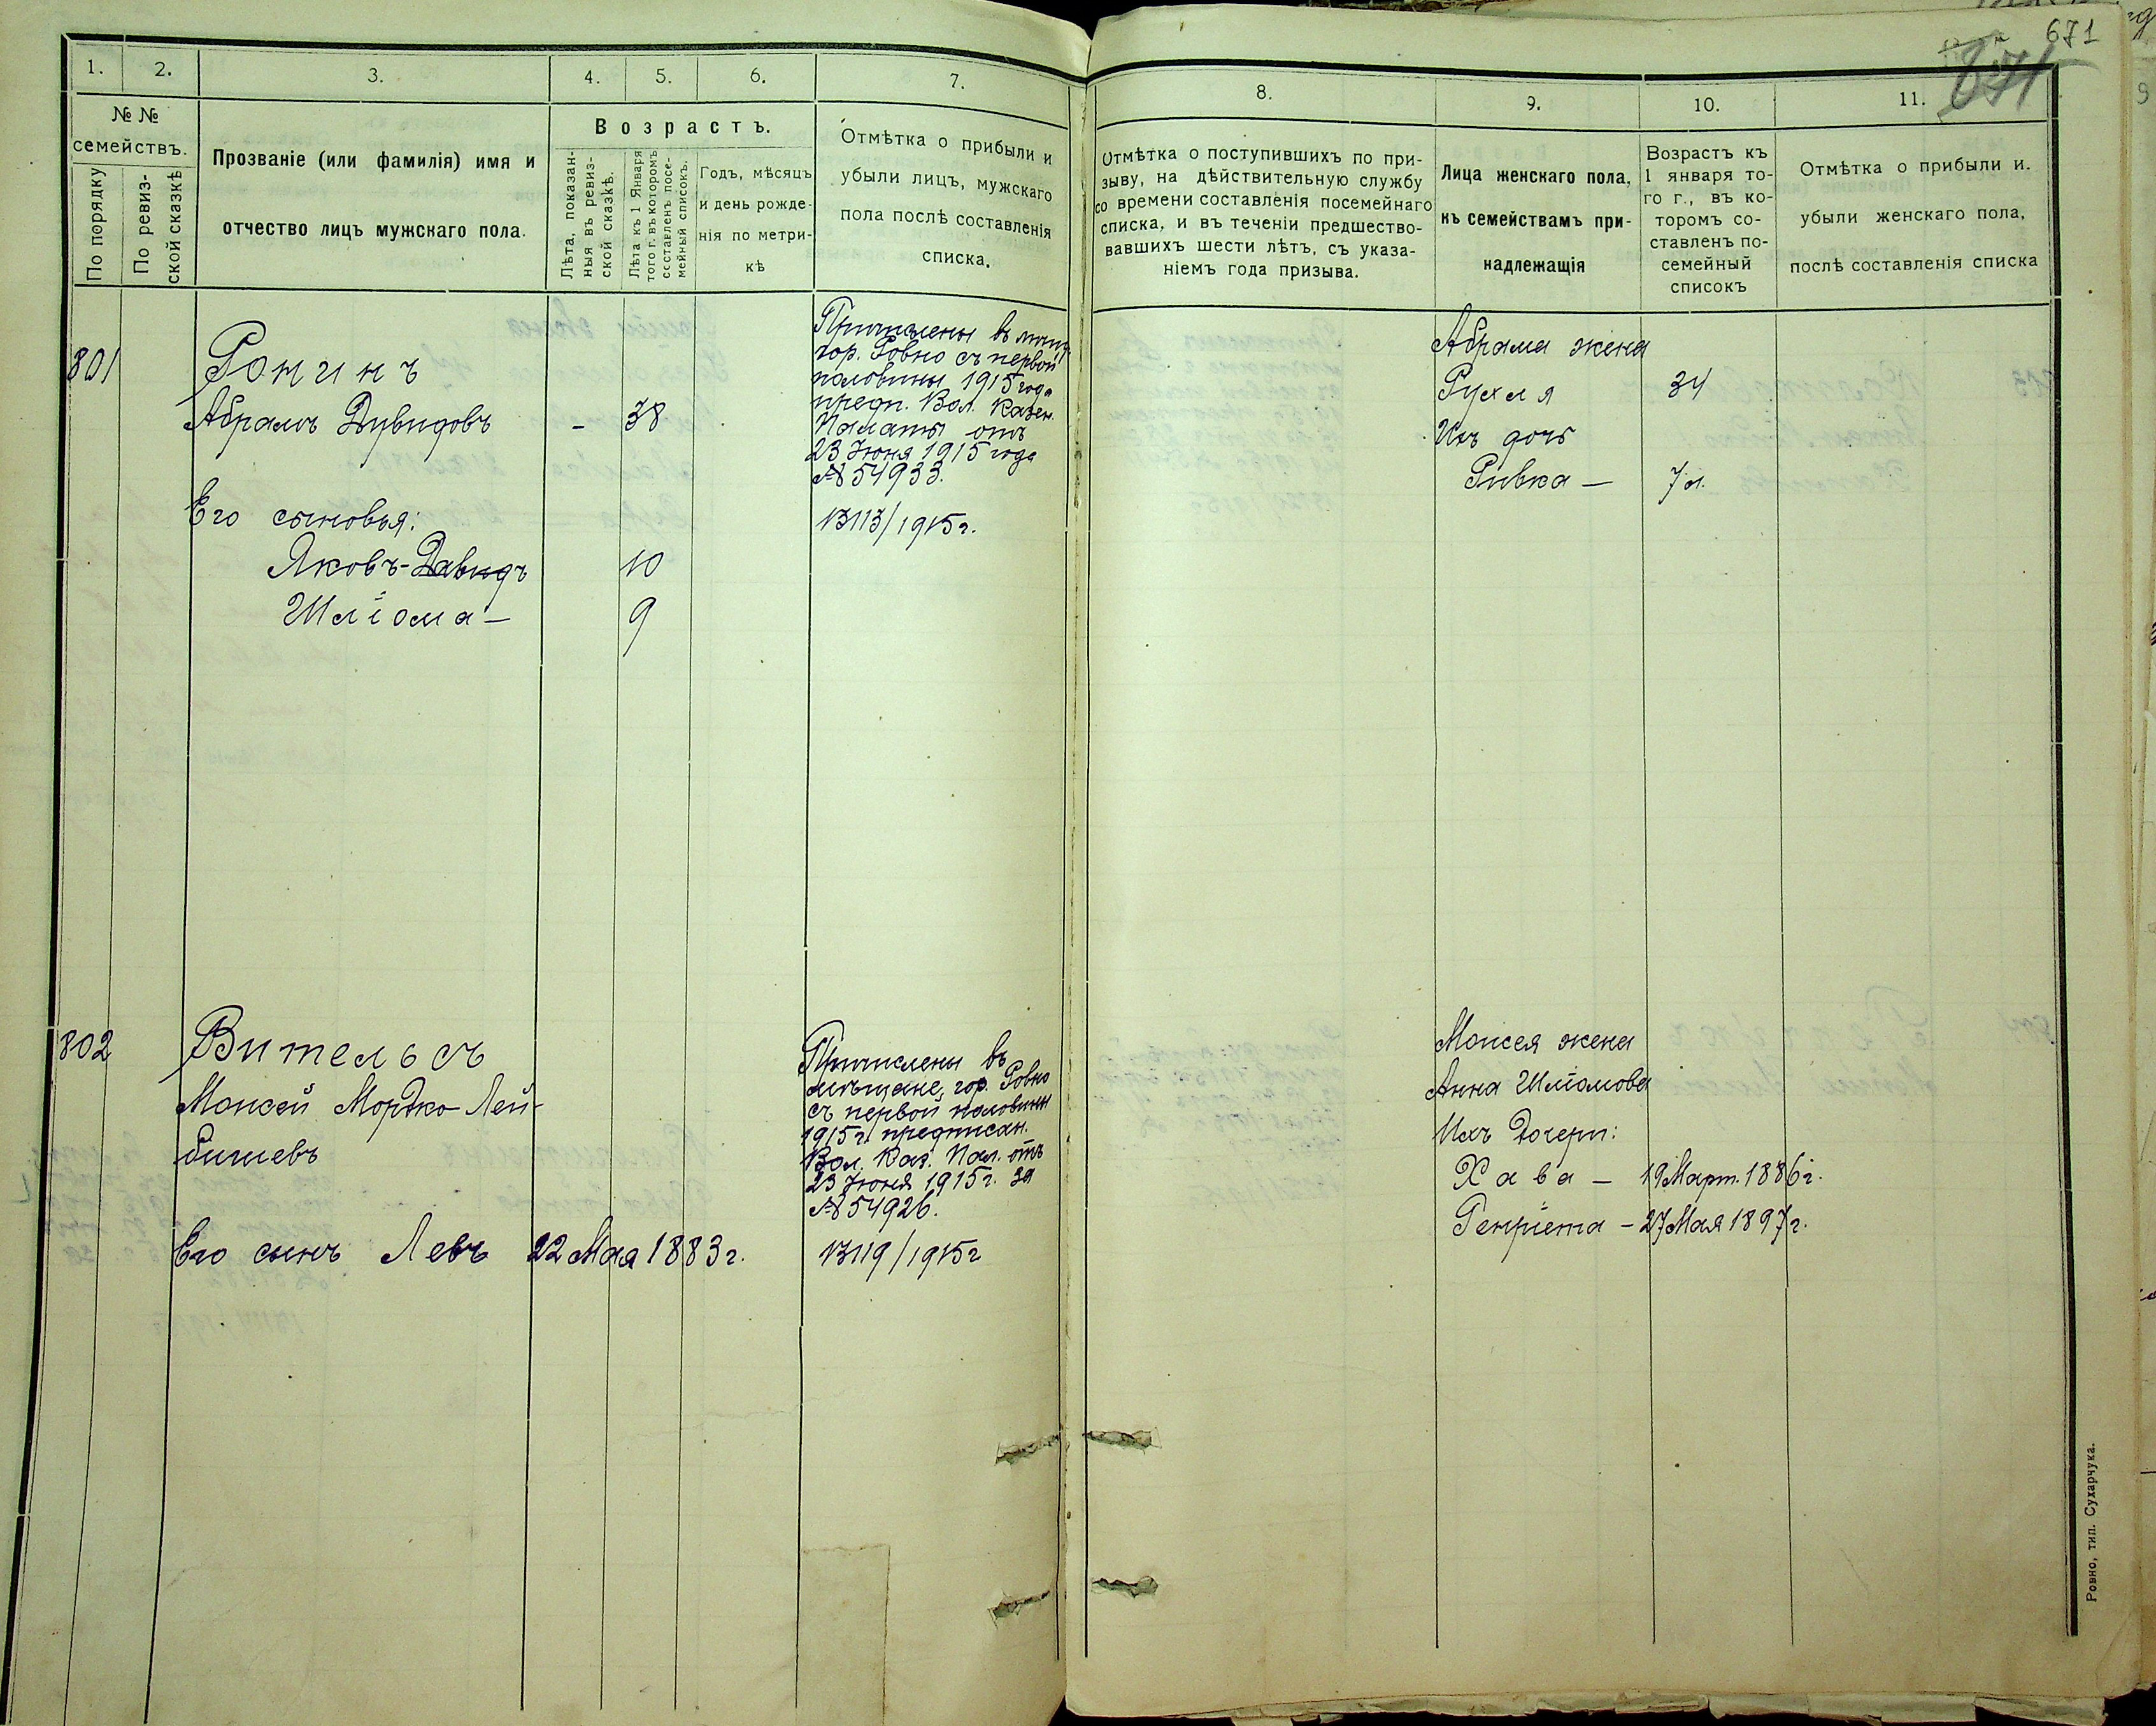 671
671
1.
2.
3.
4.
5.
6.
7.
№ №
семействъ.
По порядку
По ревиз-
ской сказкѣ
Прозваніе (или фамилія) имя и
отчество лицъ мужскаго пола.
Возрастъ.
Лѣта, показан-
ныя въ ревиз-
ской сказкѣ.
Лѣта къ 1 Января
того г. въ которомъ
составленъ посе-
мейный списокъ.
Годъ, мѣсяцъ
и день рожде-
нія по метри-
кѣ
Отмѣтка о прибыли и
убыли лицъ, мужскаго
пола послѣ составленія
списка.
801
Ронинъ
Абрамъ Дувидовъ - 38
Его сыновья:
Яковъ-Давидъ 10
Шліома - 9
Причислены въ мѣщ.
гор. Ровно съ первой
половины 1915 года
предп. Вол. Казен.
Палаты отъ
23 Іюня 1915 года
№ 54933.
13113/1915г.
802
Вительсъ
Моисей Мордко-Лей-
бишевъ
Его сынъ Левъ 22 Мая 1883г.
Причислены въ
мѣщане, гор. Ровно
съ первой половины
1915г. предписан.
Вол. Каз. Пал. отъ
23 Іюня 1915г. за
№ 54926.
13119/1915г
8.
9.
10.
11.
Отмѣтка о поступившихъ по при-
зыву, на дѣйствительную службу
со времени составленія посемейнаго
списка, и въ теченіи предшество-
вавшихъ шести лѣтъ, съ указа-
ніемъ года призыва.
Лица женскаго пола,
къ семействамъ при-
надлежащія
Возрастъ къ
1 января то-
го г., въ ко-
торомъ со-
ставленъ по-
семейный
списокъ
Отмѣтка о прибыли и.
убыли женскаго пола,
послѣ составленія списка
Абрама жена
Рухля 34
Ихъ дочь
Ривка - 7 л.
Моисея жена
Анна Шліомова
Ихъ Дочери:
Хава - 19 Март. 1886г.
Генріета - 27 Мая 1897г.
Ровно, тип. Сухарчука.